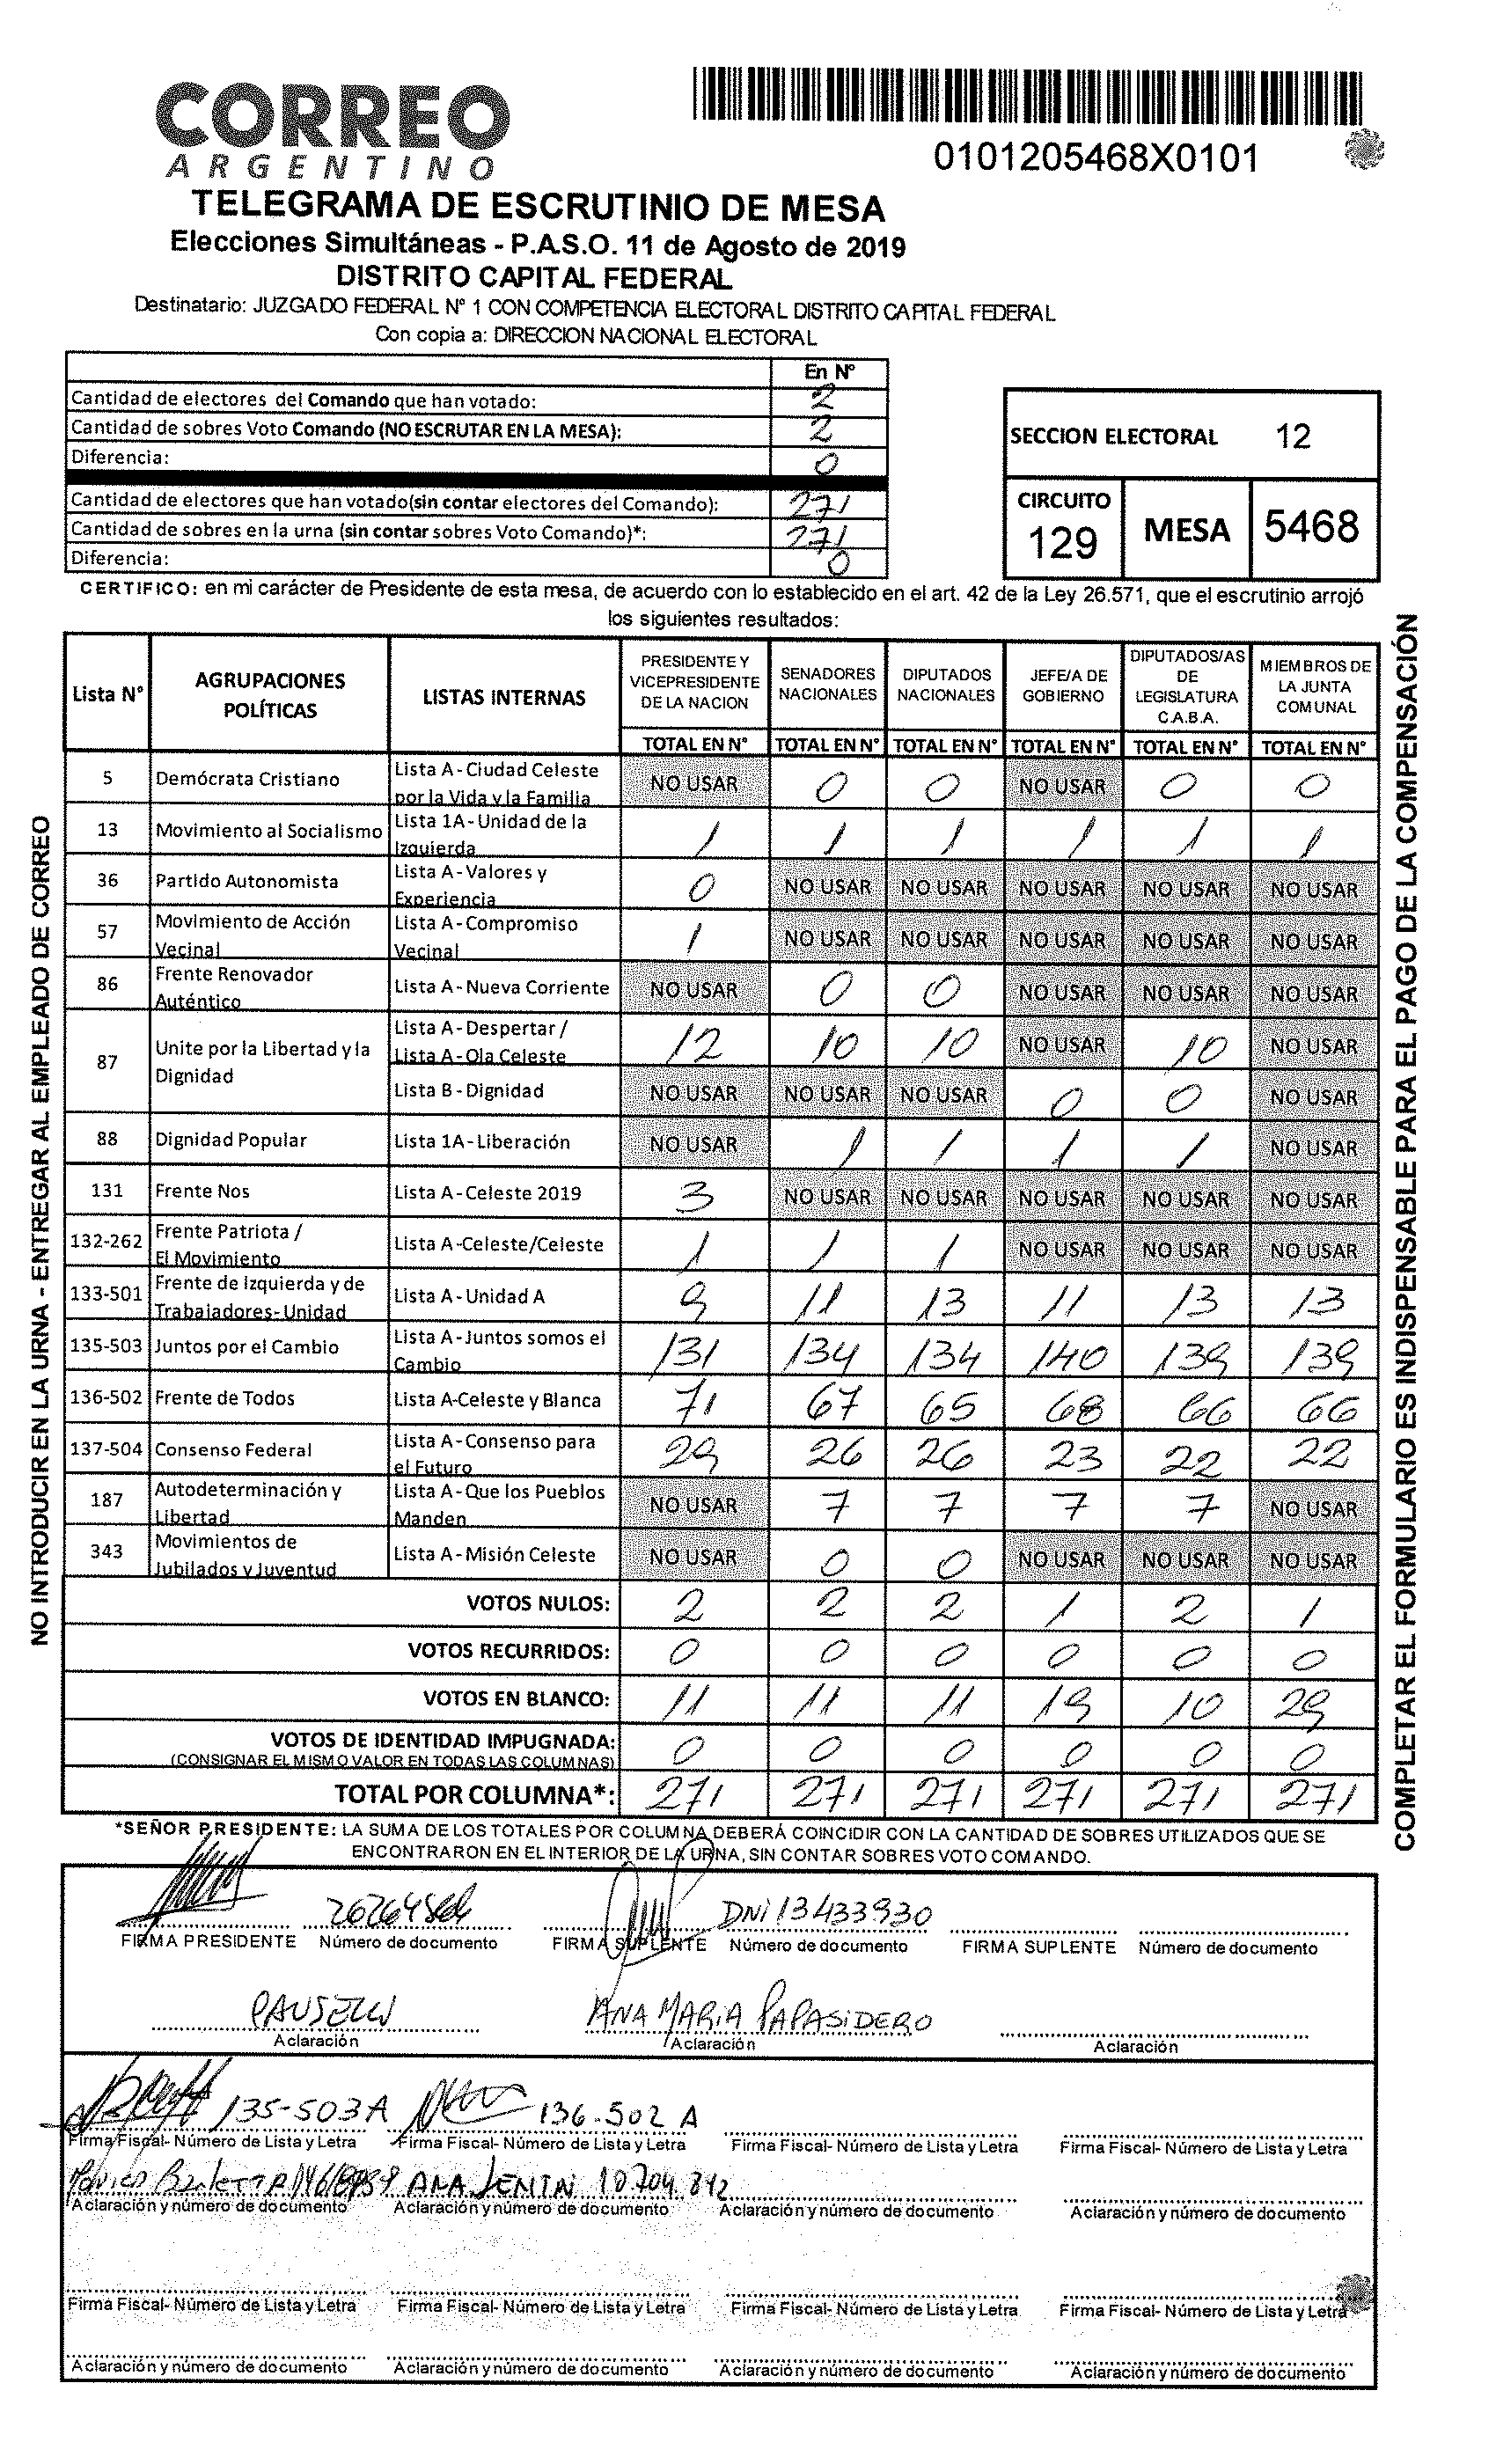 CORREO
ARGENTINO
0101205468X0101
TELEGRAMA DE ESCRUTINIO DE MESA
Elecciones Simultáneas - P.A.S.O. 11 de Agosto de 2019
DISTRITO CAPITAL FEDERAL
Destinatario: JUZGADO FEDERAL N° 1 CON COMPETENCIA ELECTORAL DISTRITO CAPITAL FEDERAL
Con copia a: DIRECCION NACIONAL ELECTORAL
En N°
Cantidad de electores del Comando que han votado: 2
Cantidad de sobres Voto Comando (NO ESCRUTAR EN LA MESA): 2
Diferencia: 0
Cantidad de electores que han votado(sin contar electores del Comando): 271
Cantidad de sobres en la urna (sin contar sobres Voto Comando)*: 271
Diferencia: 0
SECCION ELECTORAL 12
CIRCUITO 129 MESA 5468
CERTIFICO: en mi carácter de Presidente de esta mesa, de acuerdo con lo establecido en el art. 42 de la Ley 26.571, que el escrutinio arrojó
los siguientes resultados:
Lista N° AGRUPACIONES POLÍTICAS LISTAS INTERNAS PRESIDENTE Y VICEPRESIDENTE DE LA NACION SENADORES NACIONALES DIPUTADOS NACIONALES JEFE/A DE GOBIERNO DIPUTADOS/AS DE LEGISLATURA C.A.B.A. MIEMBROS DE LA JUNTA COMUNAL
TOTAL EN N° TOTAL EN N° TOTAL EN N° TOTAL EN N° TOTAL EN N° TOTAL EN N°
5 Demócrata Cristiano Lista A - Ciudad Celeste por la Vida y la Familia NO USAR 0 0 NO USAR 0 0
13 Movimiento al Socialismo Lista 1A - Unidad de la Izquierda 1 1 1 1 1 1
36 Partido Autonomista Lista A - Valores y Experiencia 0 NO USAR NO USAR NO USAR NO USAR NO USAR
57 Movimiento de Acción Vecinal Lista A - Compromiso Vecinal 1 NO USAR NO USAR NO USAR NO USAR NO USAR
86 Frente Renovador Auténtico Lista A - Nueva Corriente NO USAR 0 0 NO USAR NO USAR NO USAR
87 Unite por la Libertad y la Dignidad Lista A - Despertar / Lista A - Ola Celeste 12 10 10 NO USAR 10 NO USAR
Lista B - Dignidad NO USAR NO USAR NO USAR 0 0 NO USAR
88 Dignidad Popular Lista 1A - Liberación NO USAR 1 1 1 1 NO USAR
131 Frente Nos Lista A - Celeste 2019 3 NO USAR NO USAR NO USAR NO USAR NO USAR
132-262 Frente Patriota / El Movimiento Lista A -Celeste/Celeste 1 1 1 NO USAR NO USAR NO USAR
133-501 Frente de Izquierda y de Trabajadores-Unidad Lista A - Unidad A 9 11 13 11 13 13
135-503 Juntos por el Cambio Lista A - Juntos somos el Cambio 131 134 134 140 139 139
136-502 Frente de Todos Lista A-Celeste y Blanca 71 67 65 68 66 66
137-504 Consenso Federal Lista A - Consenso para el Futuro 29 26 26 23 22 22
187 Autodeterminación y Libertad Lista A - Que los Pueblos Manden NO USAR 7 7 7 7 NO USAR
343 Movimientos de Jubilados y Juventud Lista A - Misión Celeste NO USAR 0 0 NO USAR NO USAR NO USAR
VOTOS NULOS: 2 2 2 1 2 1
VOTOS RECURRIDOS: 0 0 0 0 0 0
VOTOS EN BLANCO: 11 11 11 19 10 29
VOTOS DE IDENTIDAD IMPUGNADA: 0 0 0 0 0 0
(CONSIGNAR EL MISMO VALOR EN TODAS LAS COLUMNAS)
TOTAL POR COLUMNA*: 271 271 271 271 271 271
*SEÑOR PRESIDENTE: LA SUMA DE LOS TOTALES POR COLUMNA DEBERÁ COINCIDIR CON LA CANTIDAD DE SOBRES UTILIZADOS QUE SE
ENCONTRARON EN EL INTERIOR DE LA URNA, SIN CONTAR SOBRES VOTO COMANDO.
DNI 13433930
FIRMA PRESIDENTE Número de documento FIRMA SUPLENTE Número de documento FIRMA SUPLENTE Número de documento
ANA MARIA PAPASIDERO
Aclaración Aclaración Aclaración
135-503 A 136-502 A
Firma Fiscal- Número de Lista y Letra Firma Fiscal- Número de Lista y Letra Firma Fiscal- Número de Lista y Letra Firma Fiscal- Número de Lista y Letra
ANA 10.704.842
Aclaración y número de documento Aclaración y número de documento Aclaración y número de documento Aclaración y número de documento
Firma Fiscal- Número de Lista y Letra Firma Fiscal- Número de Lista y Letra Firma Fiscal- Número de Lista y Letra Firma Fiscal- Número de Lista y Letra
Aclaración y número de documento Aclaración y número de documento Aclaración y número de documento Aclaración y número de documento
NO INTRODUCIR EN LA URNA - ENTREGAR AL EMPLEADO DE CORREO
COMPLETAR EL FORMULARIO ES INDISPENSABLE PARA EL PAGO DE LA COMPENSACIÓN